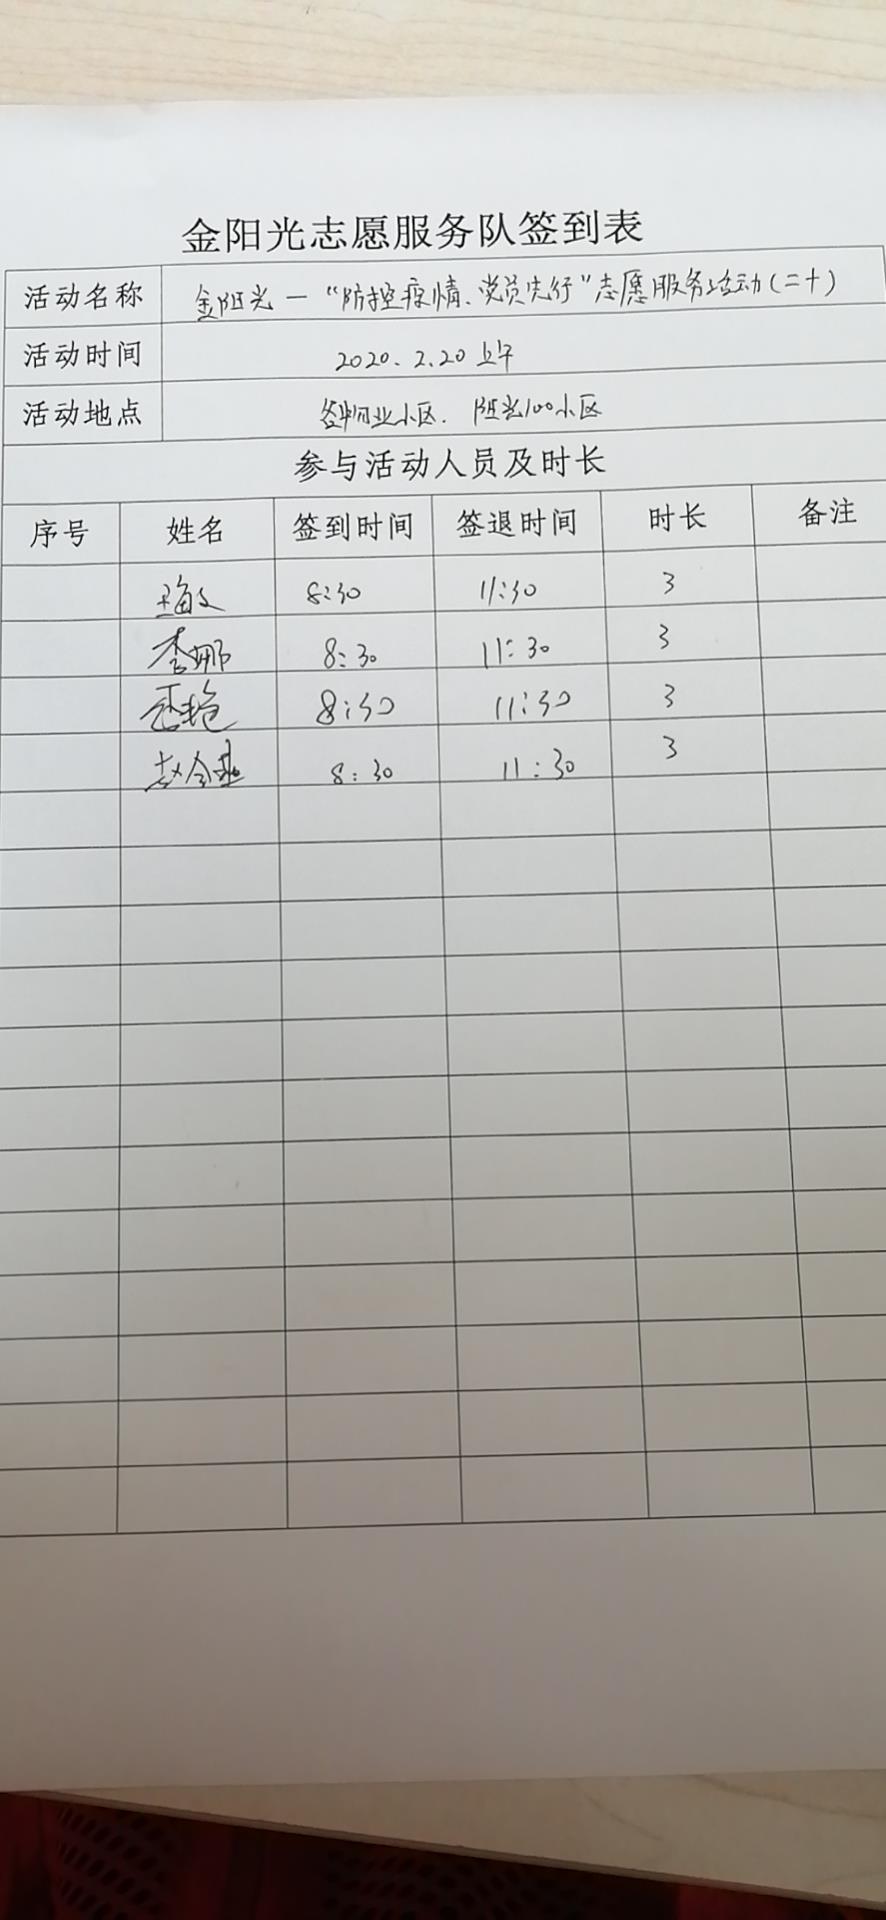 金阳光志愿服务队签到表
活动名称 金阳光—“防控疫情、党员先行”志愿服务活动(二十)
活动时间 2020.2.20 上午
活动地点 物业小区. 阳光100小区
参与活动人员及时长
序号 姓名 签到时间 签退时间 时长 备注
8:30 11:30 3
李娜 8:30 11:30 3
8:30 11:30 3
赵 8:30 11:30 3